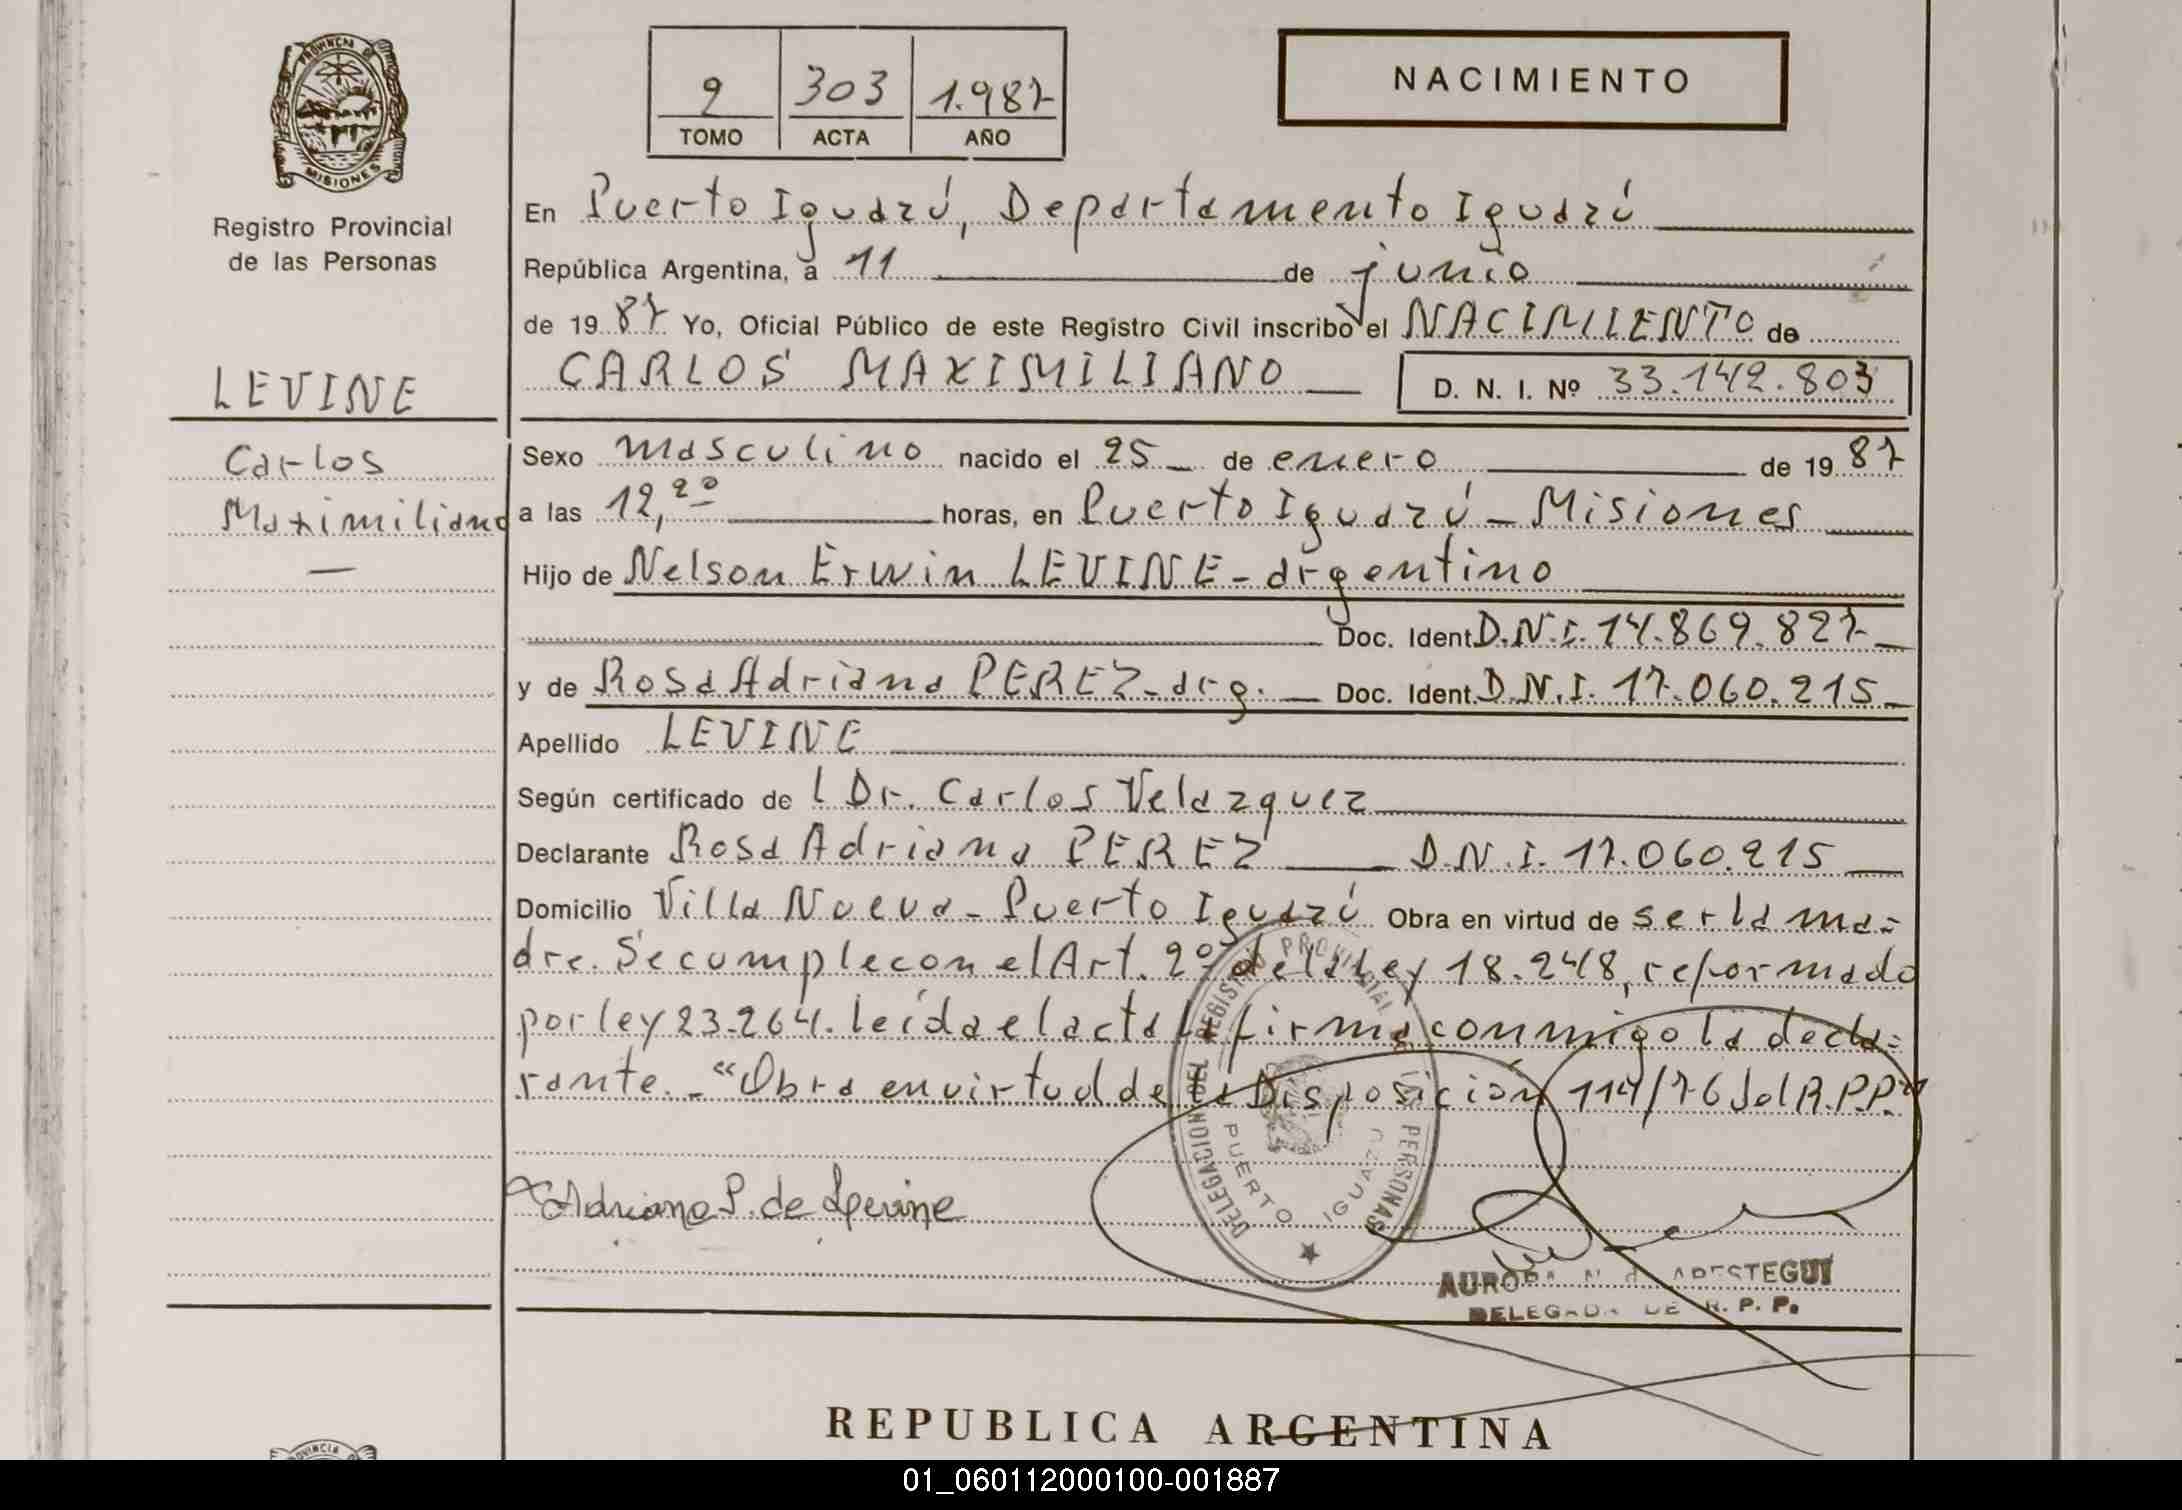 PROVINCIA DE
MISIONES
Registro Provincial
de las Personas
2 303 1.987
TOMO ACTA AÑO
NACIMIENTO
En Puerto Iguazú, Departamento Iguazú
República Argentina, a 11 de junio
de 1987 Yo, Oficial Público de este Registro Civil inscribo el NACIMIENTO de
CARLOS MAXIMILIANO D. N. I. Nº 33.142.803
LEVINE
Carlos
Maximiliano
—
Sexo masculino nacido el 25 de enero de 1987
a las 12,20 horas, en Puerto Iguazú - Misiones
Hijo de Nelson Erwin LEVINE - argentino
Doc. Ident. D.N.I. 14.869.827
y de Rosa Adriana PEREZ - arg. Doc. Ident. D.N.I. 17.060.215
Apellido LEVINE
Según certificado de l Dr. Carlos Velazquez
Declarante Rosa Adriana PEREZ D.N.I. 17.060.215
Domicilio Villa Nueva - Puerto Iguazú Obra en virtud de ser la ma=
dre. Se cumple con el Art. 2º de la Ley 18.248, reformado
por ley 23.264. Leída el acta la firma conmigo la decla=
rante._ "Obra en virtud de la Disposición 114/76 del R.P.P."
Adriana P. de Levine
DELEGACION DEL REGISTRO PROVINCIAL DE LAS PERSONAS
PUERTO IGUAZU
AURORA N. de ARESTEGUI
DELEGADA DE R. P. P.
REPUBLICA ARGENTINA
PROVINCIA
01_060112000100-001887